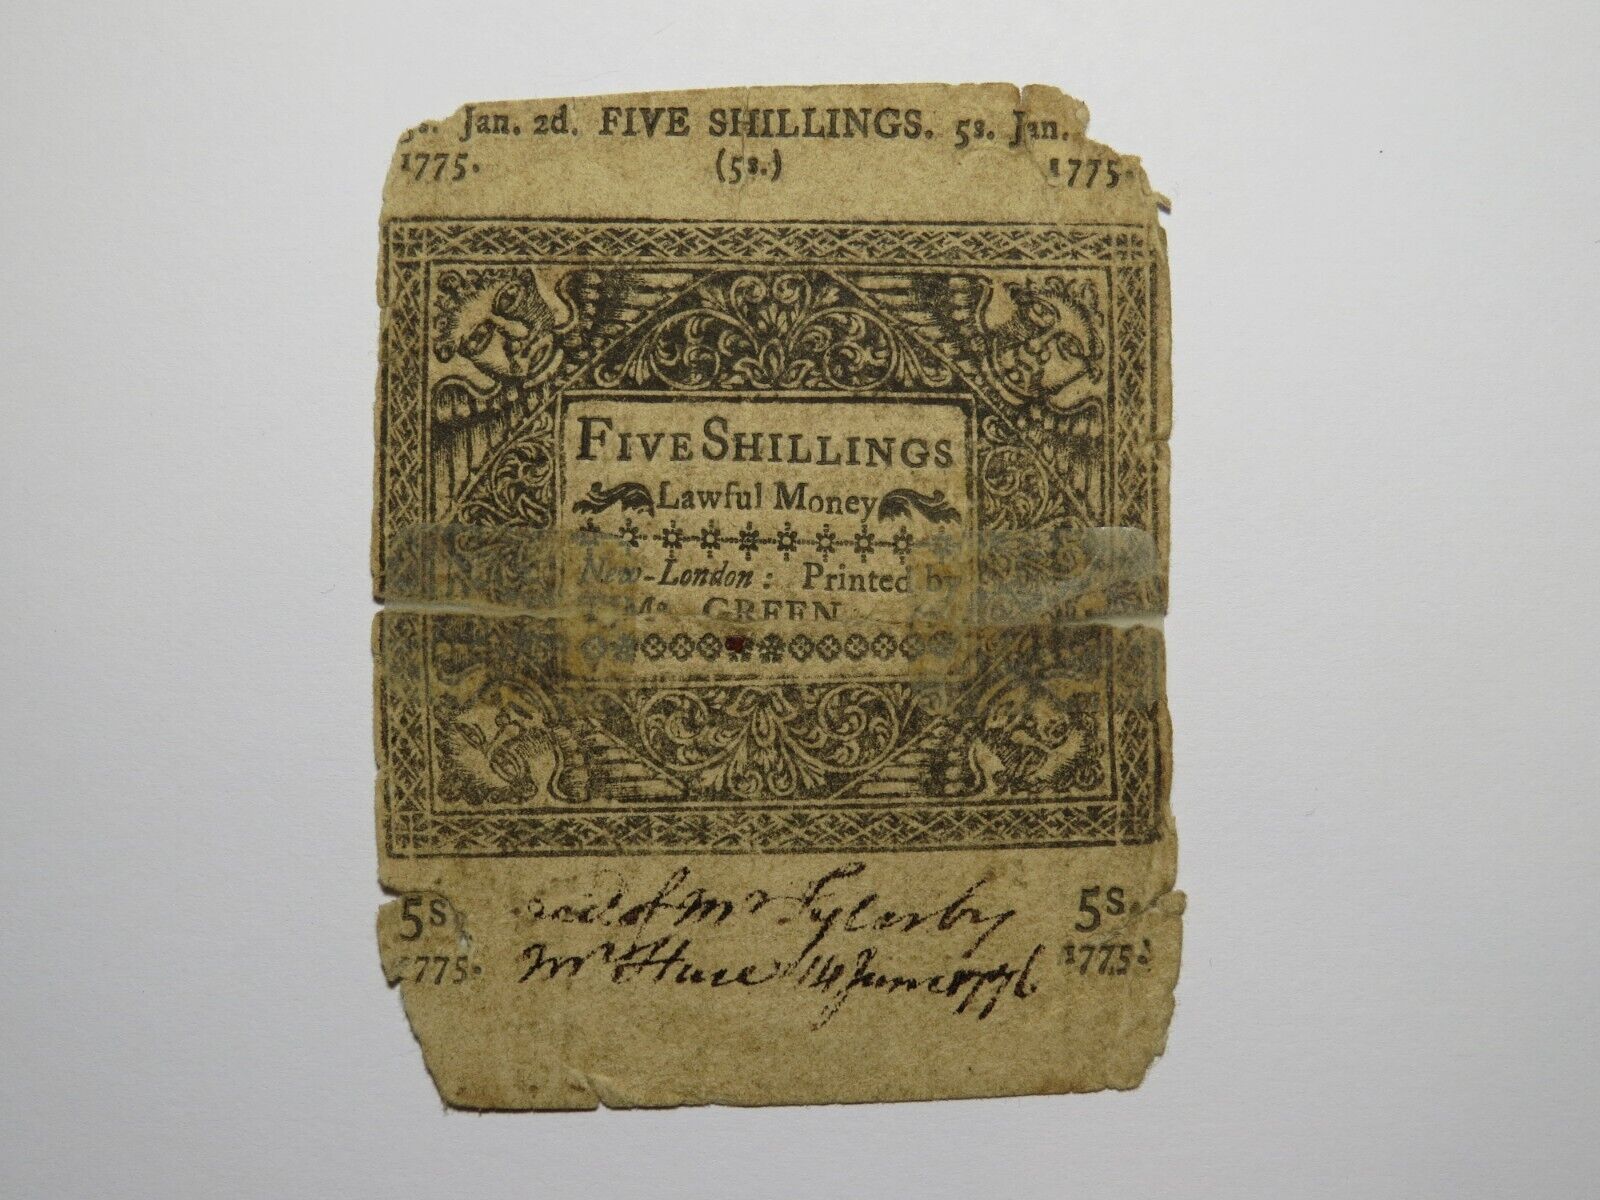 5s. Jan. 2d. FIVE SHILLINGS. 5s. Jan.
1775. (5s.) 1775.
FIVE SHILLINGS
Lawful Money
New-London: Printed by
GREEN
5s. of Mr by 5s.
1775. Mr 14 June 1776 1775.